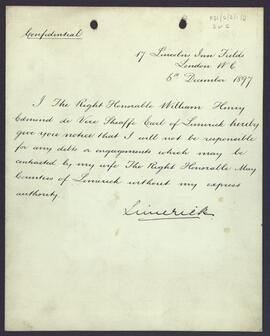 Confidential
17 Lincolns Inn Fields
London W C
6th December 1897
I The Right Honorable William Henry
Edmund de Vere Sheaffe Earl of Limerick hereby
give you notice that I will not be responsible
for any debts or engagements which may be
contracted by my wife The Right Honorable May
Countess of Limerick without my express
authority
Limerick